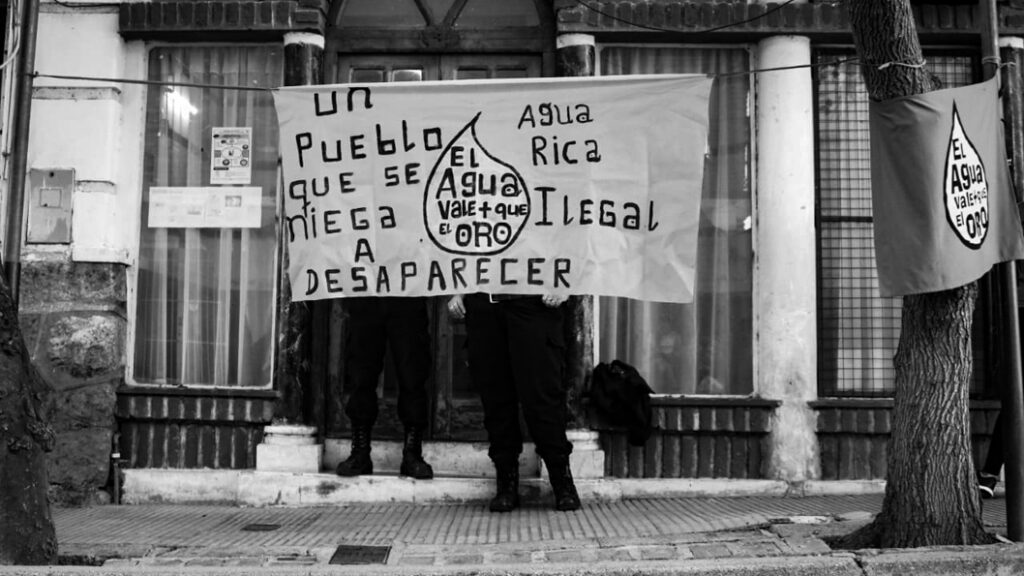 un
PuebLo
que se
niega
A
DESAPARECER
EL
Agua
vale + que
EL ORO
Agua
Rica
ILegal
EL
Agua
vale + que
el
oro